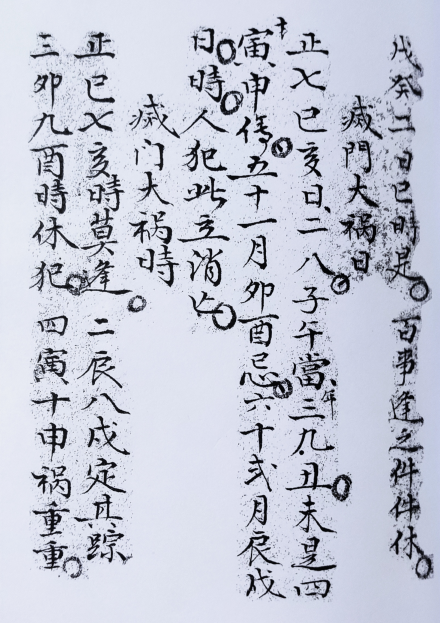 戊癸二日巳時是。百事逢之件件休。
滅門大禍日
正七巳亥日、二八子午當、三九丑未是、四
十寅申傷。五十一月卯酉忌。六十弍月辰戌
日。時。人犯此立消亡。
滅门大禍時
正巳七亥時莫逢。二辰八戌定其踪
三卯九酉時休犯。四寅十申禍重重。